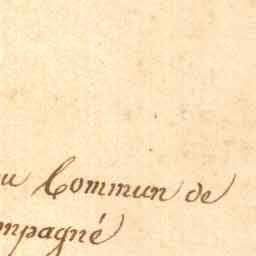 au Commun de
ompagné